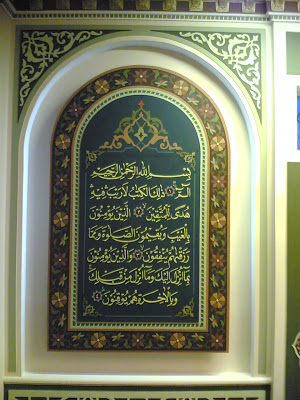 بِسْمِ اللهِ الرَّحْمٰنِ الرَّحِيْمِ
الٓمّٓ ﴿١﴾ ذٰلِكَ الْكِتٰبُ لَا رَيْبَ فِيْهِ
هُدًى لِّلْمُتَّقِيْنَ ﴿٢﴾ الَّذِيْنَ يُؤْمِنُوْنَ
بِالْغَيْبِ وَيُقِيْمُوْنَ الصَّلٰوةَ وَمِمَّا
رَزَقْنٰهُمْ يُنْفِقُوْنَ ﴿٣﴾ وَالَّذِيْنَ يُؤْمِنُوْنَ
بِمَا اُنْزِلَ اِلَيْكَ وَمَا اُنْزِلَ مِنْ قَبْلِكَ
وَبِالْاٰخِرَةِ هُمْ يُوْقِنُوْنَ ﴿٤﴾